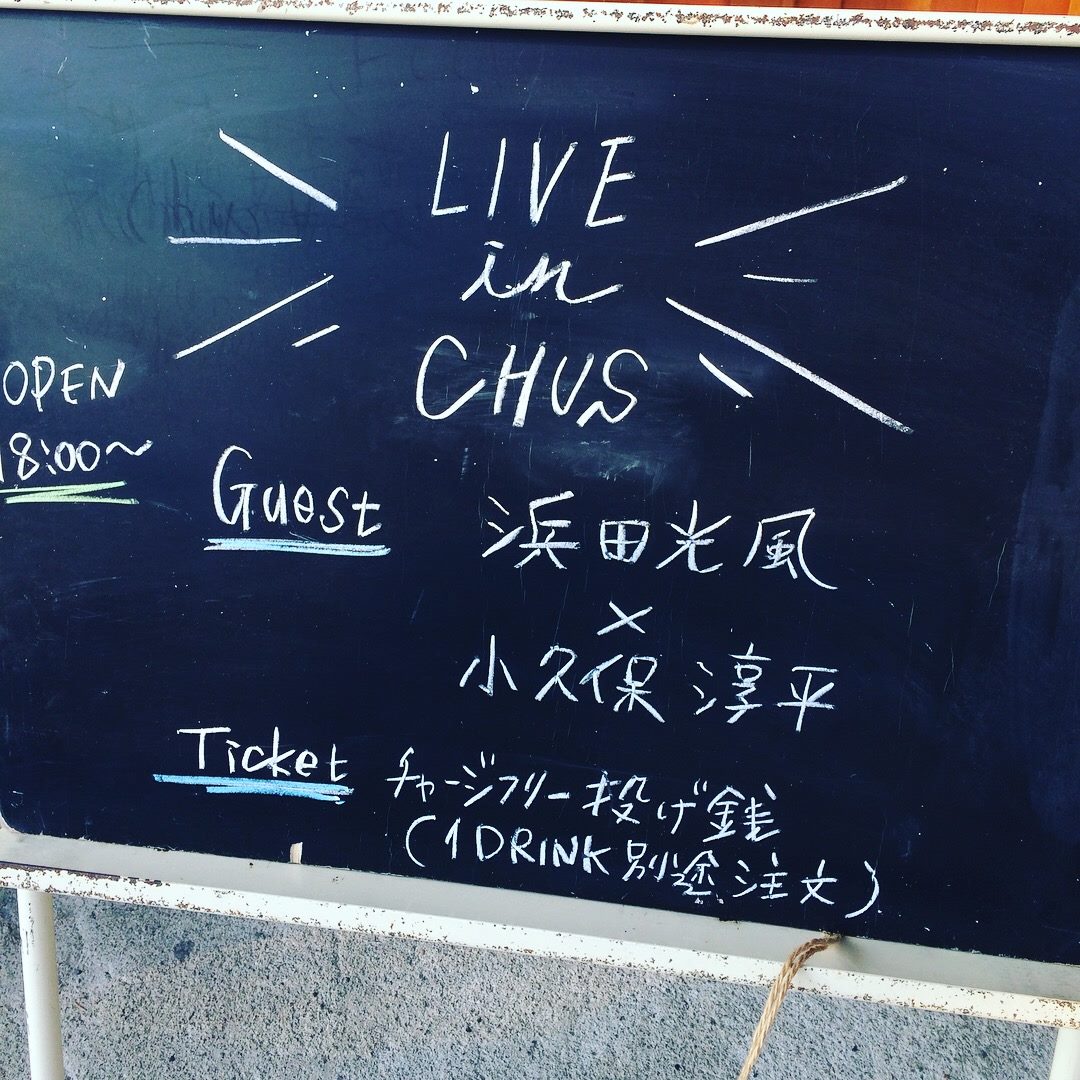 LIVE
in
CHUS
OPEN
18:00～
Guest 浜田光風
×
小久保 淳平
Ticket チャージフリー投げ銭
(1DRINK別途注文)